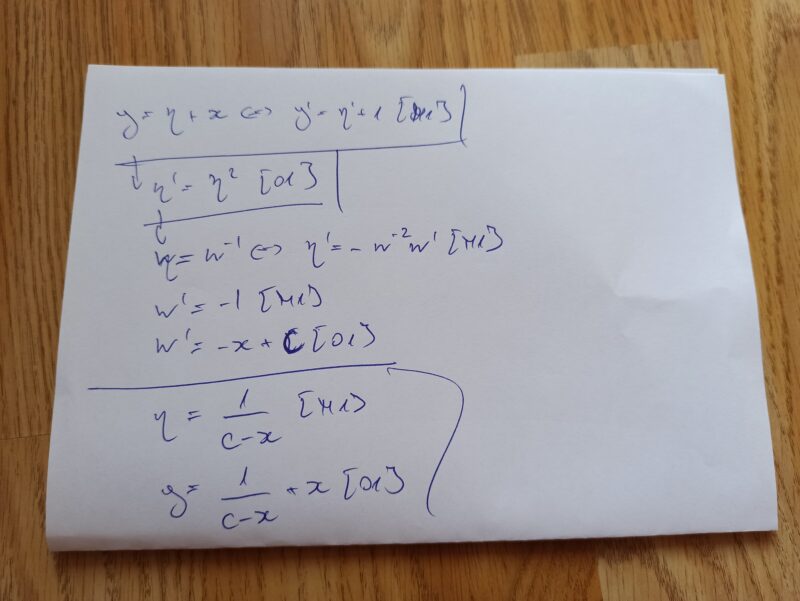 y = η + x ⇔ y' = η' + 1 [M1]
η' = η² [O1]
η = w⁻¹ ⇔ η' = - w⁻² w' [M1]
w' = -1 [M1]
w' = -x + C [O1]
η = 1/(c-x) [M1]
y = 1/(c-x) + x [O1]